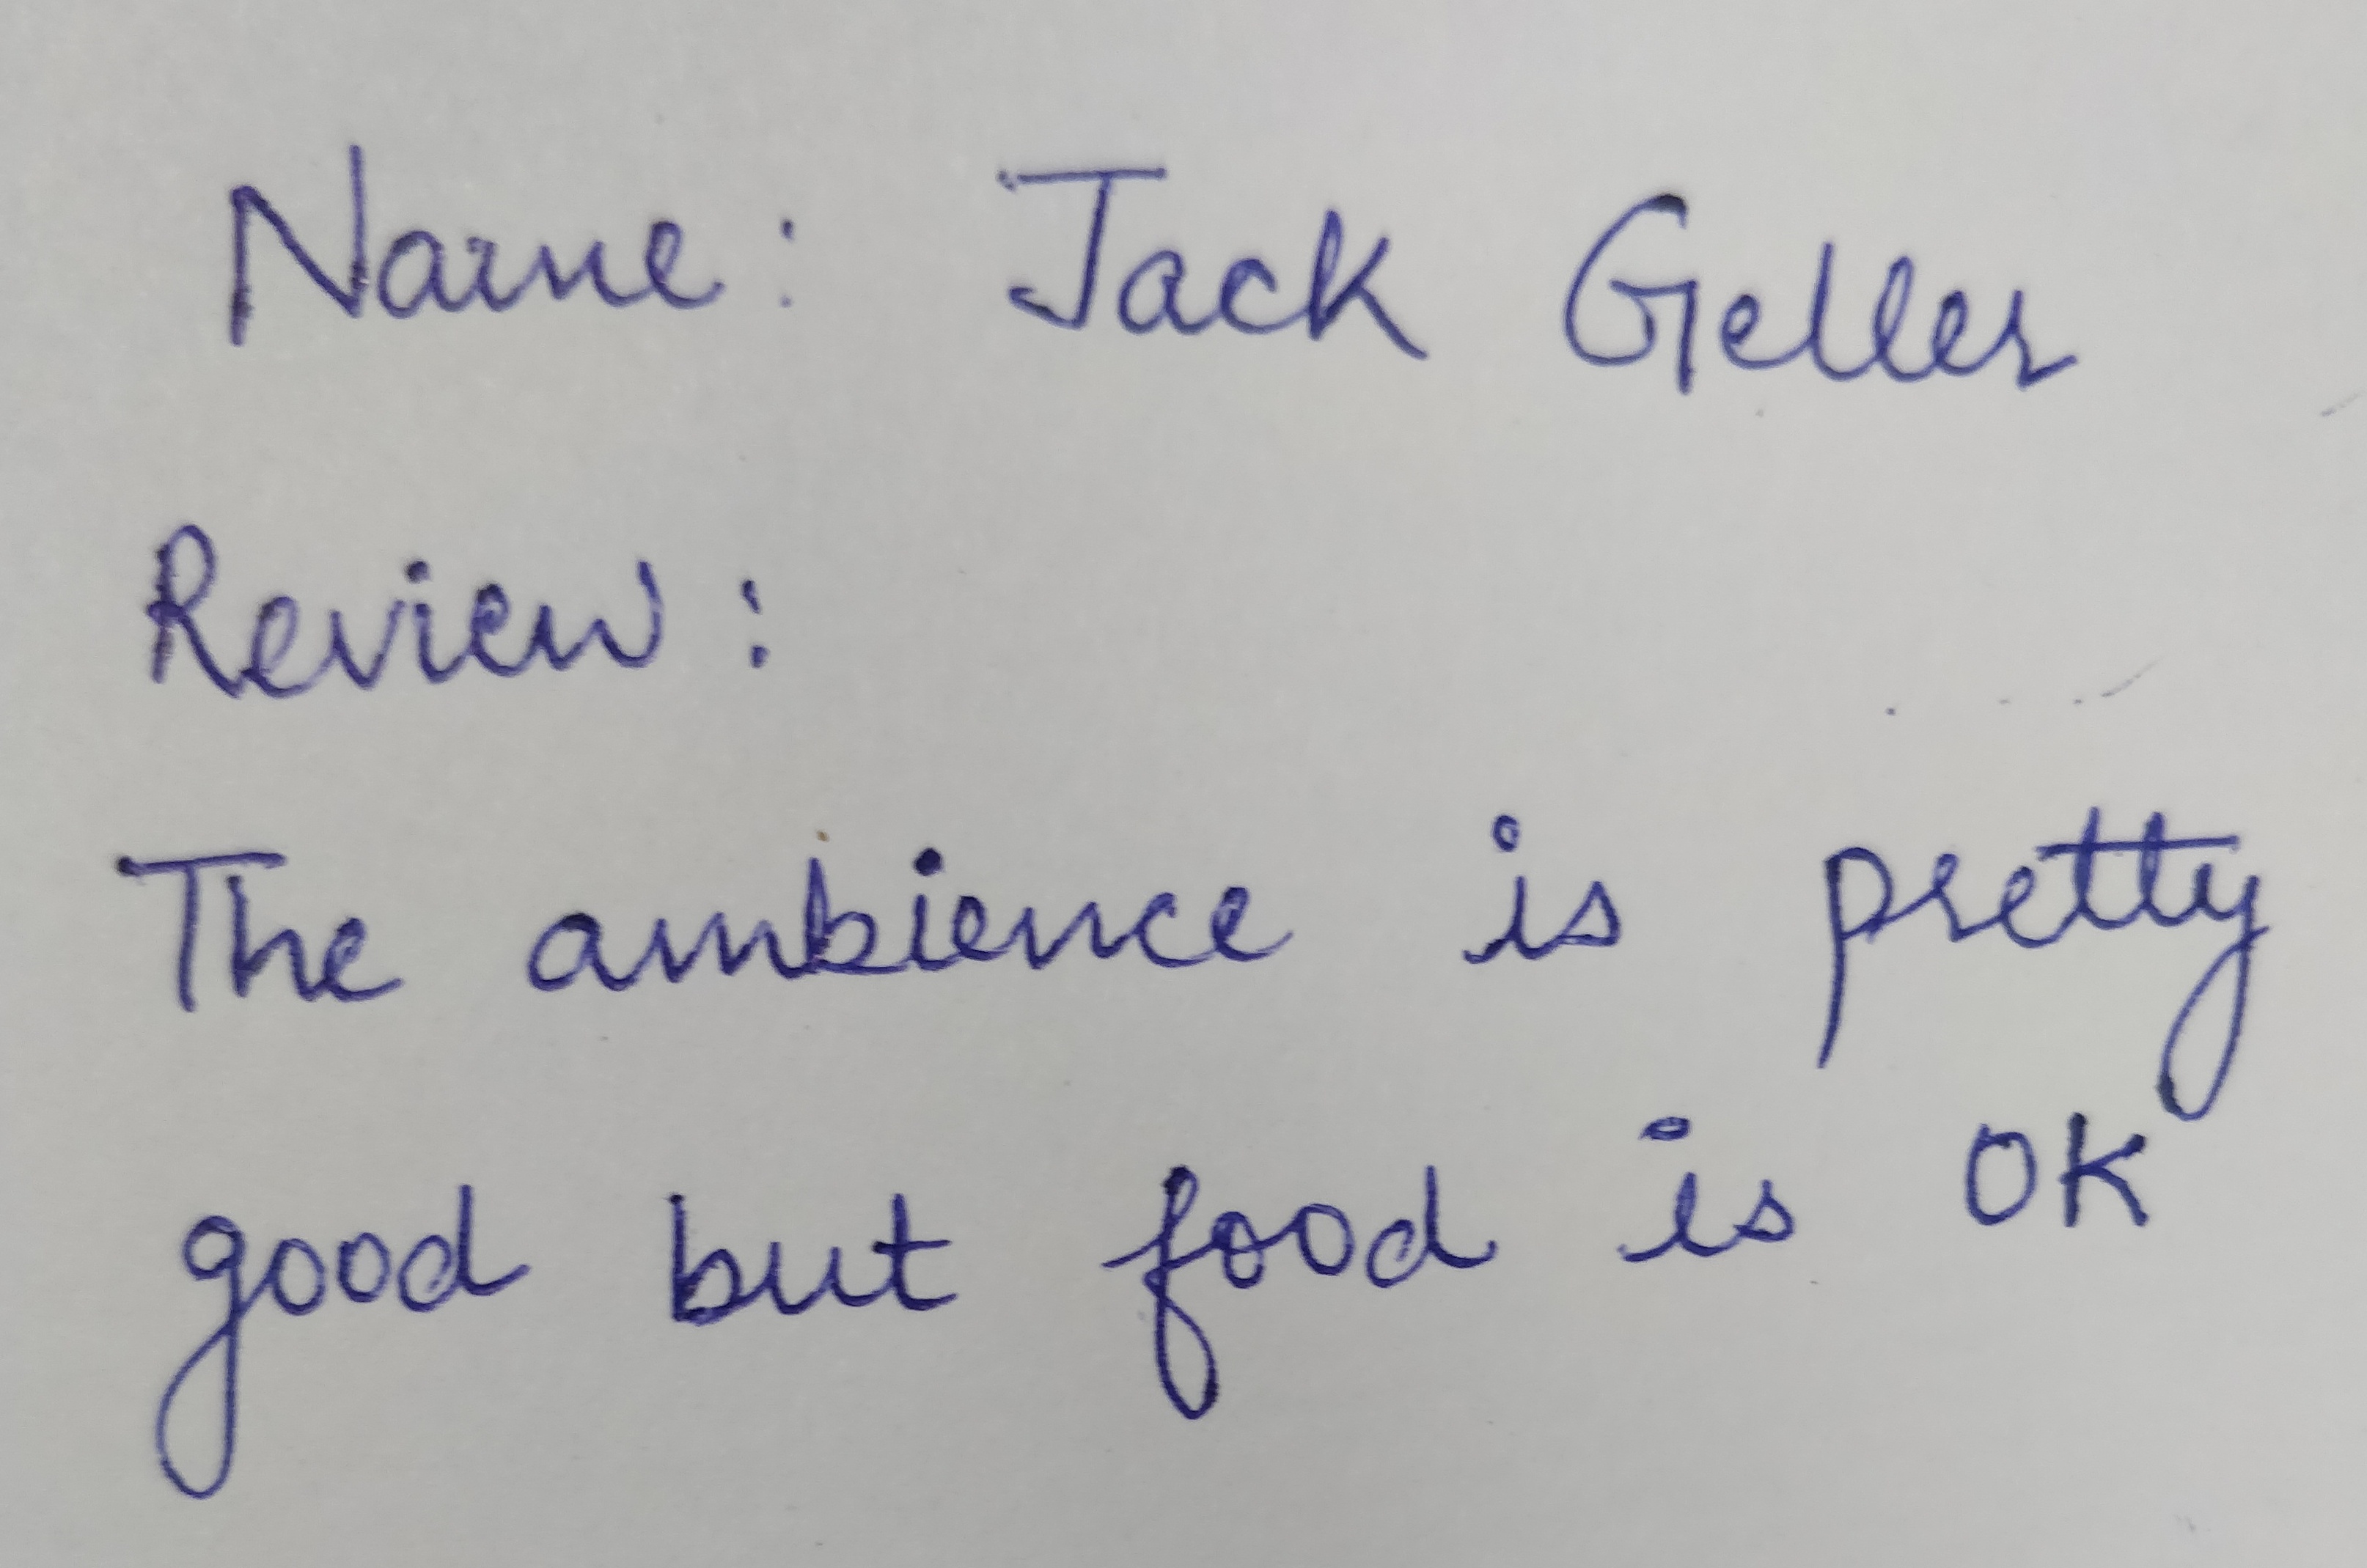 Name: Jack Geller
Review:
The ambience is pretty
good but food is OK